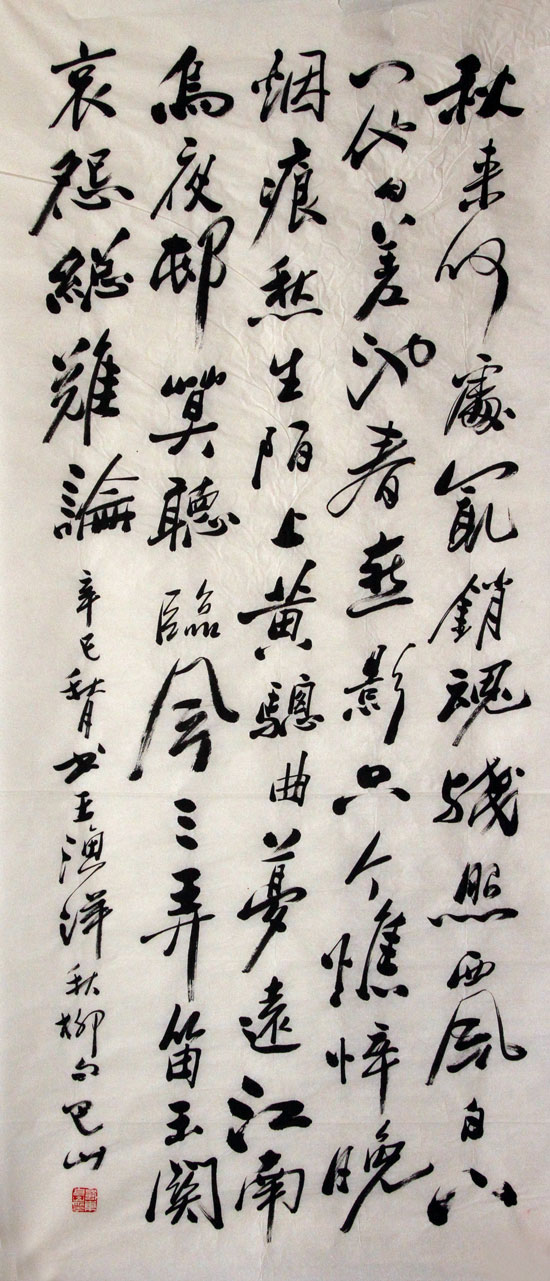 秋来何處最銷魂殘照西风白下
门他日差池春燕影只今憔悴晚
烟痕愁生陌上黄驄曲夢遠江南
烏夜邨莫聽臨风三弄笛玉関
哀怨總難論 辛巳秋月书王漁洋秋柳句巴山